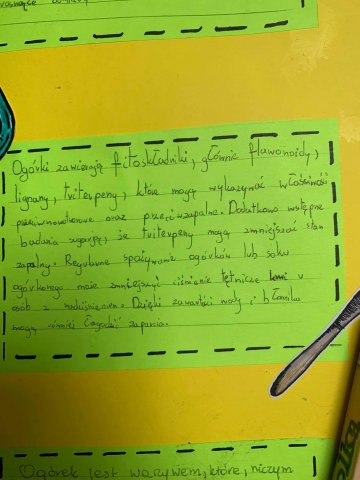 Ogórki zawierają fitoskładniki, głównie flawonoidy,
lignany, triterpeny, które mogą wykazywać właściwości
przeciwnowotworowe oraz przeciwzapalne. Dodatkowo wstępne
badania sugerują, że triterpeny mogą zmniejszać stan
zapalny. Regularne spożywanie ogórków lub soku
ogórkowego może zmniejszyć ciśnienie tętnicze krwi u
osób z nadciśnieniem. Dzięki zawartości wody i błonnika
mogą również łagodzić zaparcia.
Ogórek jest warzywem, które, niczym